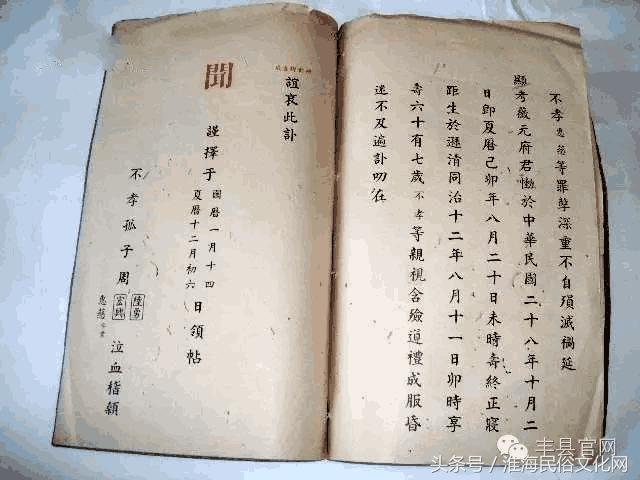 不孝惠慈等罪孽深重不自殞滅禍延
顯考薇元府君慟於中華民國二十八年十月二
日即夏曆己卯年八月二十日未時壽終正寢
距生於遜清同治十二年八月十一日卯時享
壽六十有七歲不孝等親視含殮遵禮成服昏
迷不及遍訃叨在
誼哀此訃
聞
謹擇于國曆一月十四夏曆十二月初六日領帖
不孝孤子周惠慈泣血稽顙
丰县官网
头条号／淮海民俗文化网